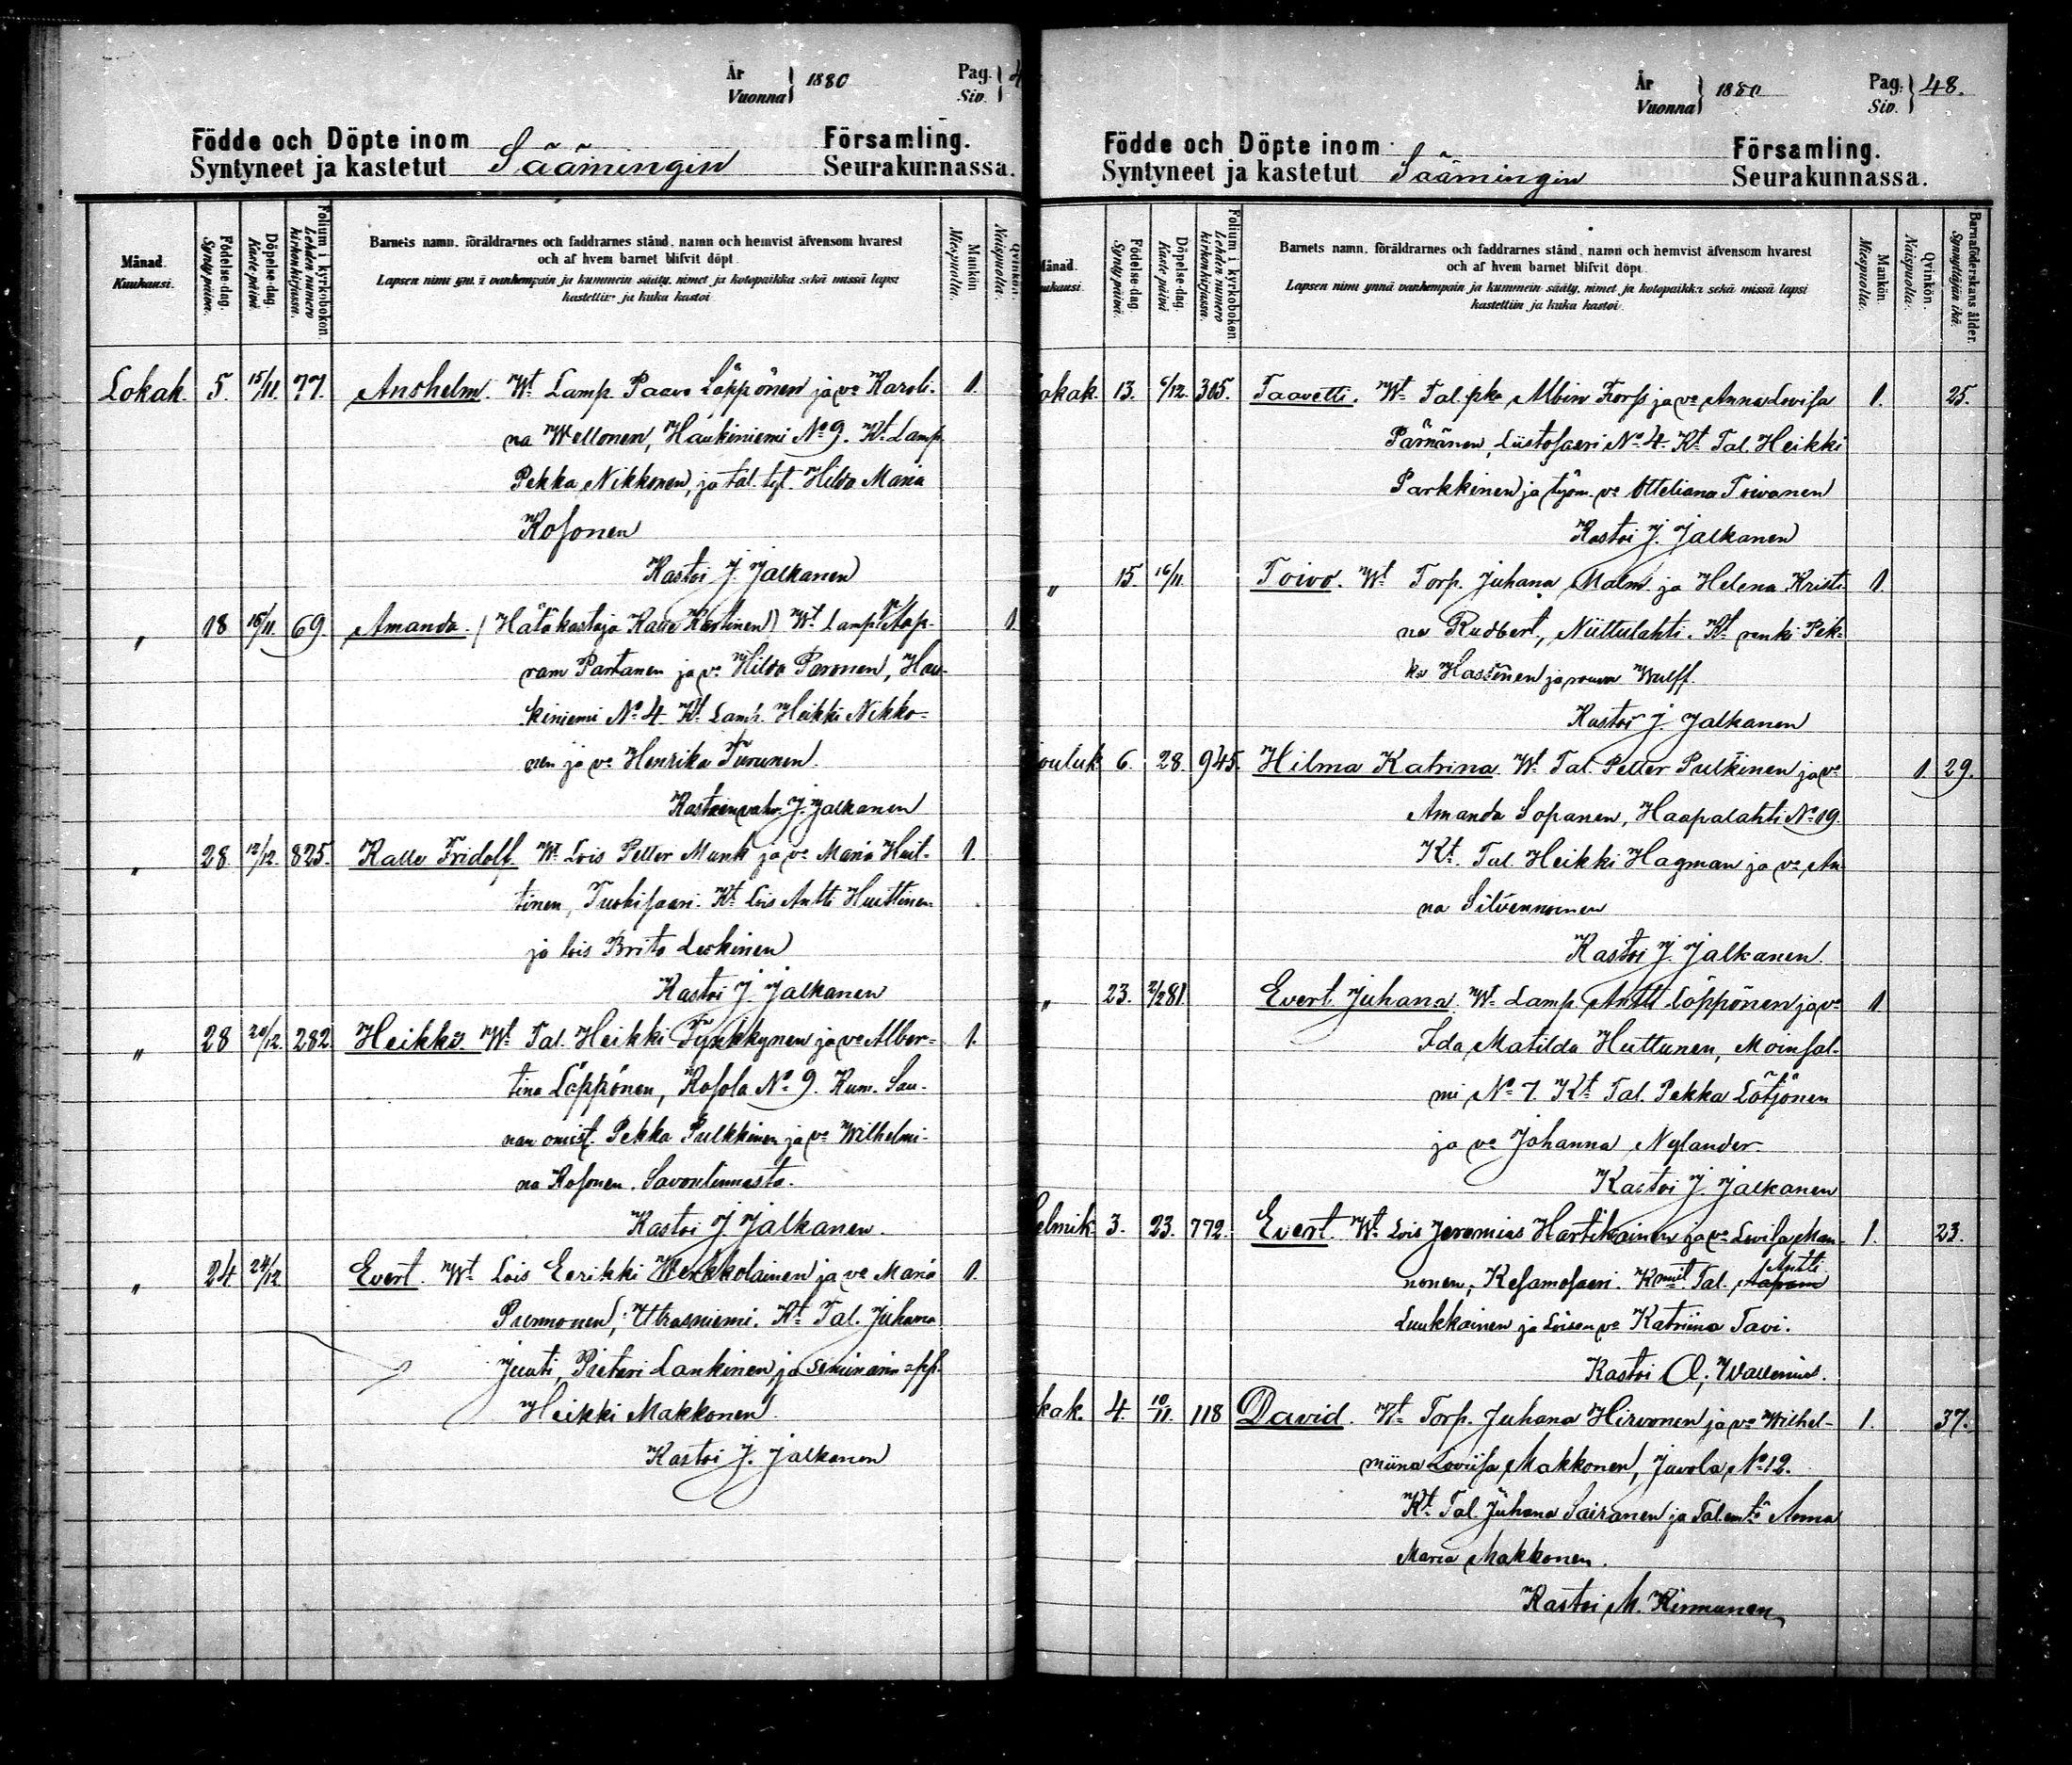 År
Vuonna } 1880
Pag.
Siv. } 4
Födde och Döpte inom
Syntyneet ja kastetut Säämingin
Församling.
Seurakunnassa.
Månad.
Kuukausi.
Födelse-dag.
Syntypäivä.
Döpelse-dag.
Kastepäivä
Folium i kyrkoboken.
Lehden numero
kirkonkirjassa.
Barnets namn, föräldrarnes och faddrarnes stånd, namn och hemvist äfvensom hvarest
och af hvem barnet blifvit döpt.
Lapsen nimi ynnä vanhempain ja kummein sääty, nimet ja kotopaikka sekä missä lapsi
kastettiin ja kuka kastoi
Mankön
Miespuolia.
Qvinkön.
Naispuolia.
Lokak. 5. 15/11. 77. Anshelm. Wt Lamp. Paavo Löppönen ja vo Karoli- 1.
na Wellonen, Haukiniemi No 9. Kt Lamp.
Pekka Nikkonen, ja tal. tyt. Hilda Maria
Kosonen
Kastoi J. Jalkanen
" 18 15/11. 69. Amanda. (Hätäkastaja Kaisa Karttinen) Wt Lamp. Aap- 1
ram Partanen ja vo Hilda Paronen, Hau-
kiniemi No 4. Kt Lamp. Heikki Nikko-
nen ja vo Henrika Turunen.
Kasteen vahv. J. Jalkanen
" 28 12/12. 825. Kalle Fridolf. Wt Lois Petter Munk ja vo Maria Huit- 1.
tinen, Tuohisaari. Kt Lois Antti Huittinen
ja lois Brita Leskinen
Kastoi J. Jalkanen
" 28 20/12. 282. Heikki Wt Tal. Heikki Tynkkynen ja vo Alber- 1.
tina Löppönen, Kosola No 9. Kum. Sau-
nan omist. Pekka Pulkkinen ja vo Wilhelmi-
na Kosonen. Savonlinnasta.
Kastoi J. Jalkanen.
" 24 24/12 Evert. Wt Lois Eerikki Werkkolainen ja vo Maria 1.
Prennonen, Utrasniemi. Kt Tal. Juhana
Juuti, Pietari Laukinen, ja seminarin opp.
Heikki Makkonen
Kastoi J. Jalkanen
År
Vuonna } 1880
Pag.
Siv. } 48.
Födde och Döpte inom
Syntyneet ja kastetut Säämingin
Församling.
Seurakunnassa.
Månad.
ukausi.
Födelse-dag.
Syntypäivä.
Döpelse-dag.
Kastepäivä
Folium i kyrkoboken.
Lehden numero
kirkonkirjassa.
Barnets namn, föräldrarnes och faddrarnes stånd, namn och hemvist äfvensom hvarest
och af hvem barnet blifvit döpt.
Lapsen nimi ynnä vanhempain ja kummein sääty, nimet ja kotopaikka sekä missä lapsi
kastettiin ja kuka kastoi.
Mankön.
Miespuolia.
Qvinkön.
Naispuolia.
Barnaföderskans ålder.
Synnyttäjän ikä.
okak. 13. 6/12. 305. Taavetti. Wt Tal. pka Albin Forss ja vo Anna Lovisa 1. 25.
Pärnänen, Liistosaari No 4. Kt Tal. Heikki
Parkkinen ja työm. vo Otteliana Toivanen
Kastoi J. Jalkanen
" 15. 16/11. Toivo. Wt Torp. Juhana Malm ja Helena Kristi- 1.
na Rudbert, Niittulahti. Kt renki Pek-
ka Hassinen ja rouva Wulff.
Kastoi J. Jalkanen
ouluk. 6. 28. 945. Hilma Katrina. Wt Tal. Petter Pulkinen ja vo 1 29.
Amanda Sopanen, Haapalahti No 19.
Kt. Tal. Heikki Hagman ja vo An-
na Silvennoinen
Kastoi J. Jalkanen.
" 23. 2/281. Evert Juhana. Wt Lamp. Antti Löppönen ja vo 1
Ida Matilda Huttunen, Moinsal-
mi No 7. Kt Tal. Pekka Lötjönen
ja vo Johanna Nylander.
Kastoi J. Jalkanen
elmik. 3. 23. 772. Evert. Wt Lois Jeremias Hartikainen ja vo Lovisa Man- 1. 23.
nonen, Kesamosaari. Kmit Tal. Aapram Antti
Luukkainen ja Loisen vo Katriina Tavi.
Kastoi O. Wallenius.
kak. 4. 10/11. 118 David. Wt Torp. Juhana Hirvonen ja vo Wilhel- 1. 37.
miina Loviisa Makkonen, Juvola No 12.
Kt Tal. Juhana Sairanen ja Tal. emtä Anna
Maria Makkonen.
Kastoi M. Kinnunen